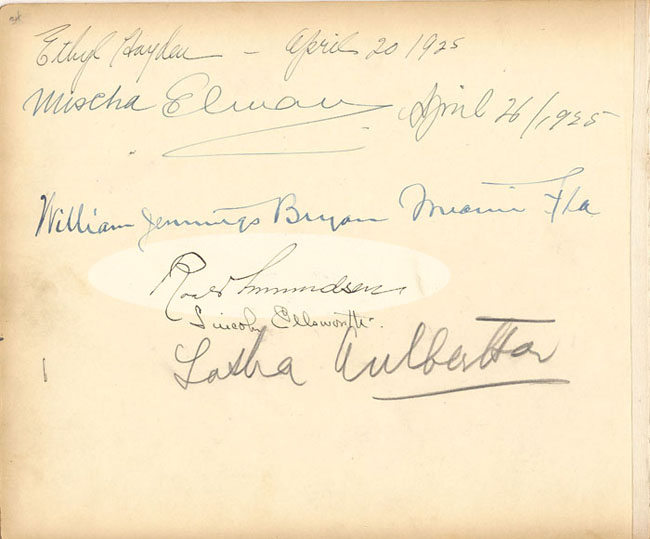 Ethyl Hayden - April 20 1925
Mischa Elman April 26/1925
William Jennings Bryan Miami Fla
Roald Amundsen
Lincoln Ellsworth
Sascha Culbertson